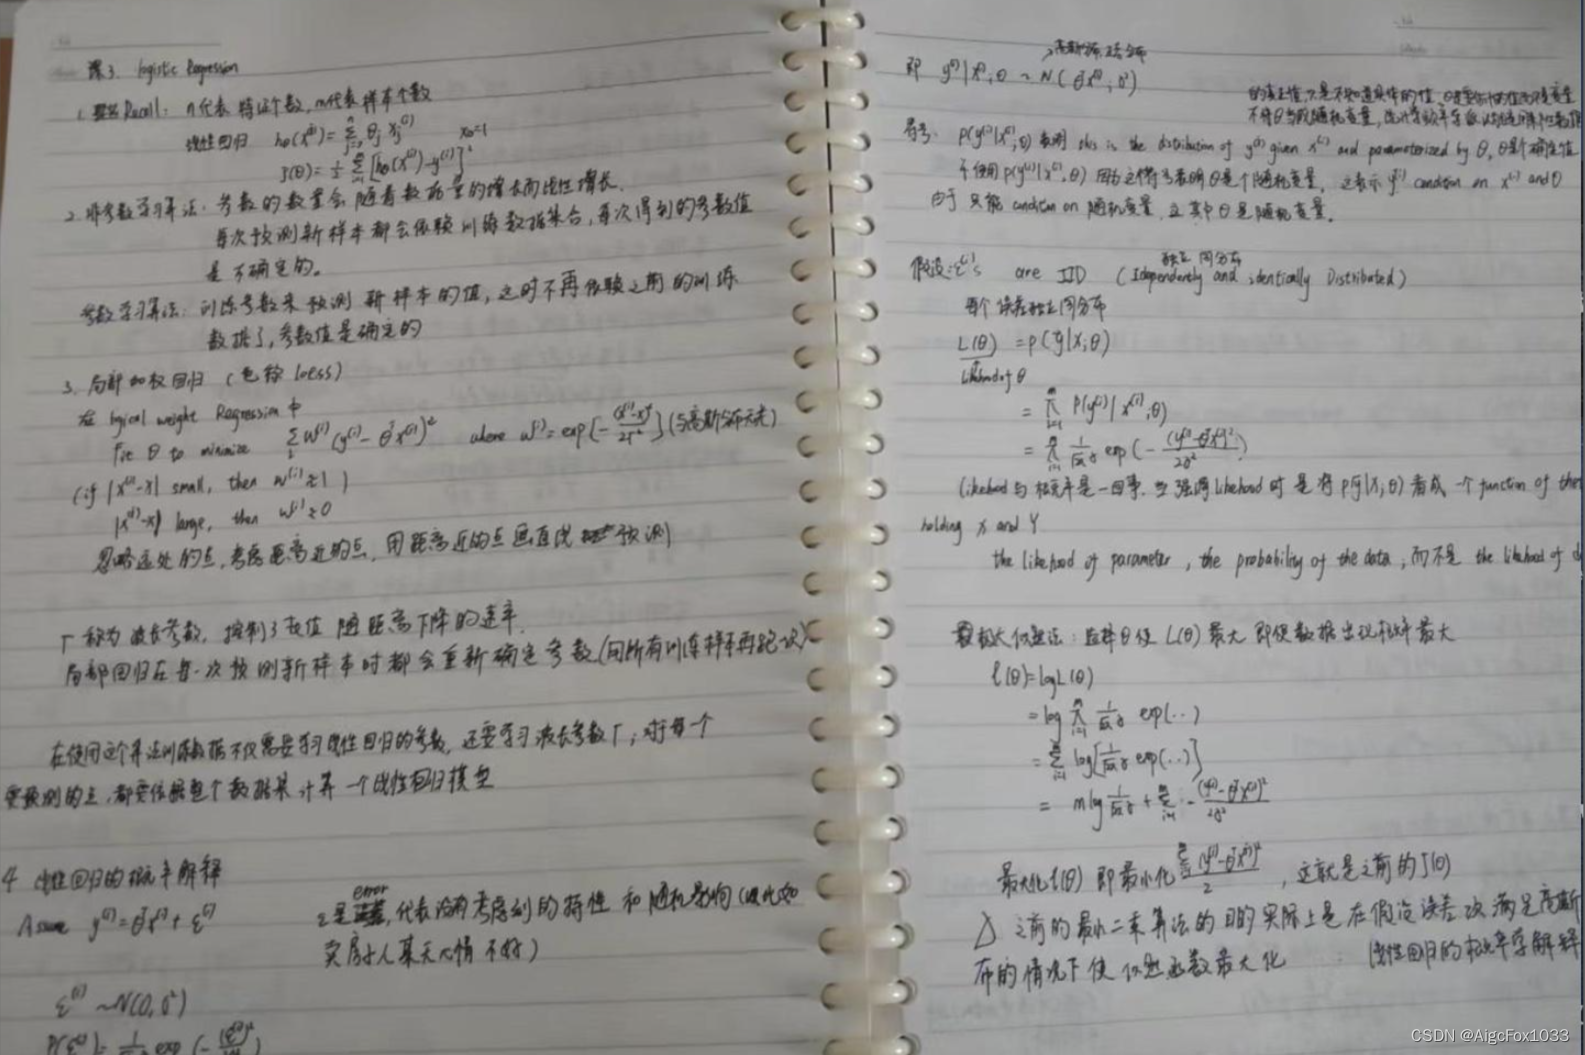 课3. logistic Regression
1. Recall: n代表特征个数, m代表样本个数
线性回归 hθ(x^(i)) = Σ θj xj^(i) x0=1
J(θ) = 1/2 Σ [hθ(x^(i)) - y^(i)]²
2. 非参数学习算法: 参数的数量会随着数据量的增长而线性增长.
每次预测新样本都会依赖训练数据集合, 每次得到的参数值
是不确定的。
参数学习算法: 训练参数来预测新样本的值, 这时不再依赖之前的训练
数据了, 参数值是确定的
3. 局部加权回归 (也称 loess)
在 logical weight Regression 中
Fit θ to minimize Σ w^(i) (y^(i) - θ^T x^(i))² where w^(i) = exp(-(x^(i)-x)²/2τ²) (与高斯分布无关)
(if |x^(i)-x| small, then w^(i)≈1)
|x^(i)-x| large, then w^(i)≈0
忽略远处的点, 考虑距离近的点, 用距离近的点画直线 预测
τ 称为波长参数, 控制了权值随距离下降的速率.
局部回归在每一次预测新样本时都会重新确定参数(问所有训练样本再跑一次)
在使用这个算法训练数据不仅需要学习线性回归的参数, 还要学习波长参数τ; 对于每个
要预测的点, 都要依据整个数据集计算一个线性回归模型
4 线性回归的概率解释
Assume y^(i) = θ^T x^(i) + ε^(i)
error
ε是 , 代表没有考虑到的特性和随机影响(比如
卖房子人某天心情不好)
ε^(i) ~ N(0, σ²)
P(ε^(i)) = exp(-(ε^(i))²
高斯分布
即 y^(i)|x^(i);θ ~ N(θ^T x^(i), σ²)
的真正值,只是不知道具体的值
不将θ当做随机变量,
符号: P(y^(i)|x^(i);θ) 表明 this is the distribution of y^(i) given x^(i) and parameterized by θ, θ是个确定值
不使用 P(y^(i)|x^(i),θ) 因为这符号表明θ是个随机变量, 这表示 y^(i) condition on x^(i) and θ
由于只能 condition on 随机变量, 立其中θ是随机变量.
独立 同分布
假设: ε^(i)'s are IID (Idependently and identically Distributed)
每个误差独立同分布
L(θ) = P(y|x;θ)
likehood of θ
= Π P(y^(i)|x^(i);θ)
= Π 1/(√2π σ) exp(-(y^(i)-θ^T x^(i))²/2σ²)
(likehood 与概率是一回事. 当强调 likehood 时是将 P(y|x;θ) 看成一个 function of the
holding x and y
the likehood of parameter, the probability of the data, 而不是 the likehood of d
极大似然法: 选择θ使 L(θ) 最大 即使数据出现概率最大
ℓ(θ) = log L(θ)
= log Π 1/(√2π σ) exp(..)
= Σ log[1/(√2π σ) exp(..)]
= m log 1/(√2π σ) + Σ -(y^(i)-θ^T x^(i))²/2σ²
最大化ℓ(θ) 即最小化 Σ(y^(i)-θ^T x^(i))²/2, 这就是之前的J(θ)
△ 之前的最小二乘算法的目的实际上是在假设误差 满足高斯
布的情况下使似然函数最大化 线性回归的概率学解释
CSDN @AigcFox1033